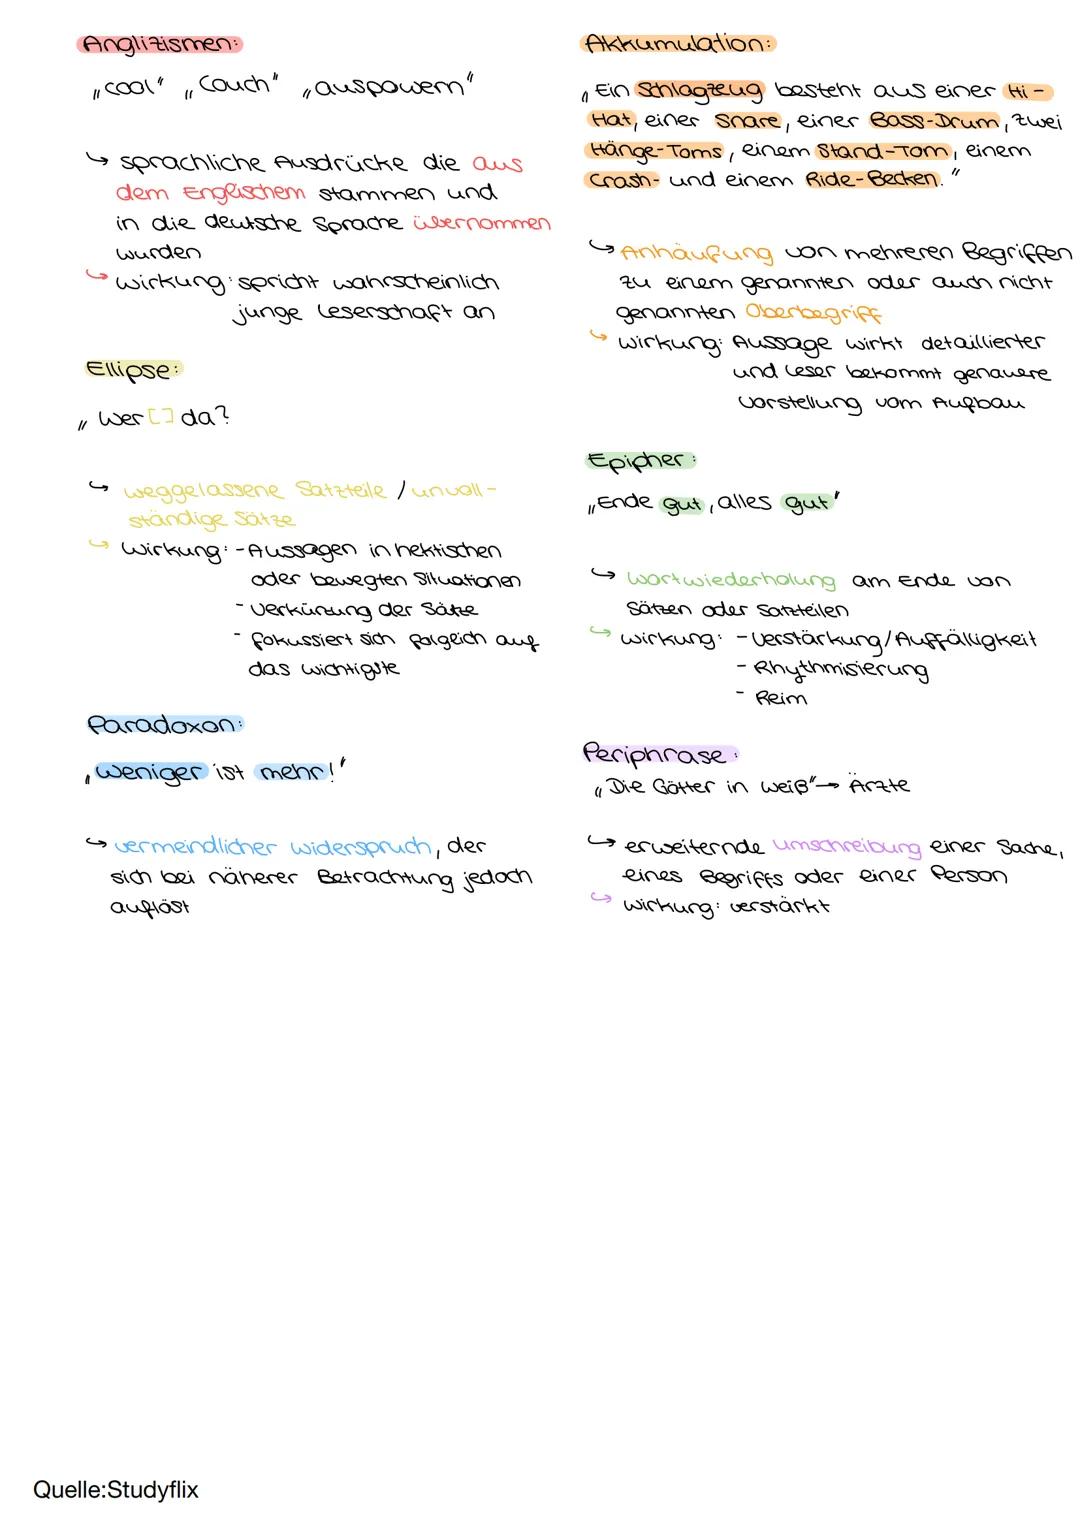 Anglizismen:
„cool" „Couch" „auspowern"
↳ sprachliche Ausdrücke die aus
dem Englischem stammen und
in die deutsche Sprache übernommen
wurden
↳ Wirkung: spricht wahrscheinlich
junge Leserschaft an
Ellipse:
„Wer [] da?
↳ weggelassene Satzteile / unvoll-
ständige Sätze
↳ Wirkung: - Aussagen in hektischen
oder bewegten Situationen
- Verkürzung der Sätze
- fokussiert sich folglich auf
das wichtigste
Paradoxon:
„Weniger ist mehr!"
↳ vermeindlicher Widerspruch, der
sich bei näherer Betrachtung jedoch
auflöst
Akkumulation:
„Ein Schlagzeug besteht aus einer Hi-
Hat, einer Snare, einer Bass-Drum, zwei
Hänge-Toms, einem Stand-Tom, einem
Crash- und einem Ride-Becken."
↳ Anhäufung von mehreren Begriffen
zu einem genannten oder auch nicht
genannten Oberbegriff
↳ Wirkung: Aussage wirkt detaillierter
und Leser bekommt genauere
Vorstellung vom Aufbau
Epipher:
„Ende gut, alles gut"
↳ Wortwiederholung am Ende von
Sätzen oder Satzteilen
↳ Wirkung: - Verstärkung/Auffälligkeit
- Rhythmisierung
- Reim
Periphrase:
„Die Götter in weiß" → Ärzte
↳ erweiternde Umschreibung einer Sache,
eines Begriffs oder einer Person
↳ Wirkung: verstärkt
Quelle:Studyflix